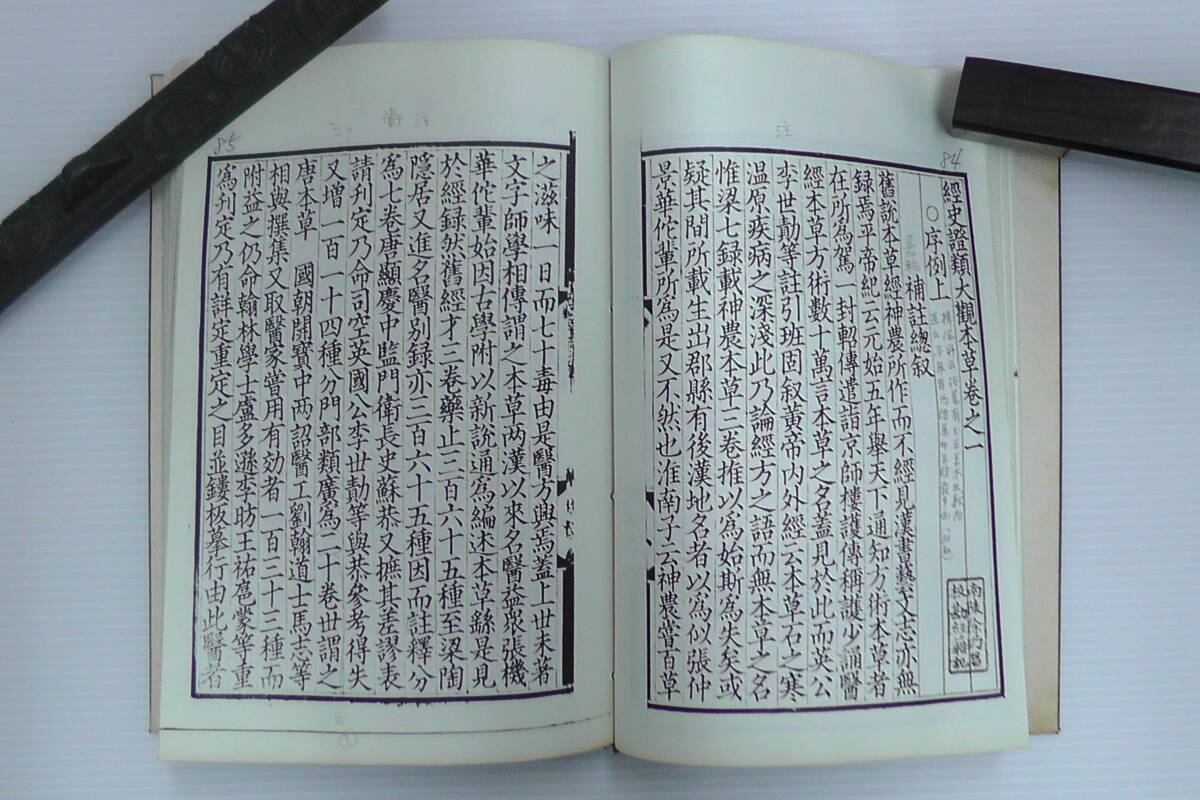 84
注
經史證類大觀本草卷之一
○序例上
補註總敘
舊說本草經神農所作而不經見漢書藝文志亦無
録焉平帝紀云元始五年舉天下通知方術本草者
在所為駕一封軺傳遣詣京師樓護傳稱護少誦醫
經本草方術數十萬言本草之名蓋見於此而英公
李世勣等註引班固敘黃帝内外經云本草石之寒
温原疾病之深淺此乃論經方之語而無本草之名
惟梁七録載神農本草三卷推以為始斯為失矣或
疑其間所載生出郡縣有後漢地名者以為似張仲
景華佗輩所為是又不然也淮南子云神農嘗百草
之滋味一日而七十毒由是醫方興焉蓋上世未著
文字師學相傳謂之本草两漢以來名醫益衆張機
華佗輩始因古學附以新說通為編述本草繇是見
於經録然舊經才三卷藥止三百六十五種至梁陶
隠居又進名醫別録亦三百六十五種因而註釋分
為七卷唐顯慶中監門衛長史蘇恭又摭其差謬表
請刊定乃命司空英國公李世勣等與恭參考得失
又增一百一十四種分門部類廣為二十卷世謂之
唐本草　國朝開寶中两詔醫工劉翰道士馬志等
相與撰集又取醫家嘗用有効者一百三十三種而
附益之仍命翰林學士盧多遜李昉王祐扈蒙等重
為刊定乃有詳定重定之目並鏤板摹行由此醫者
85
注
衛
三